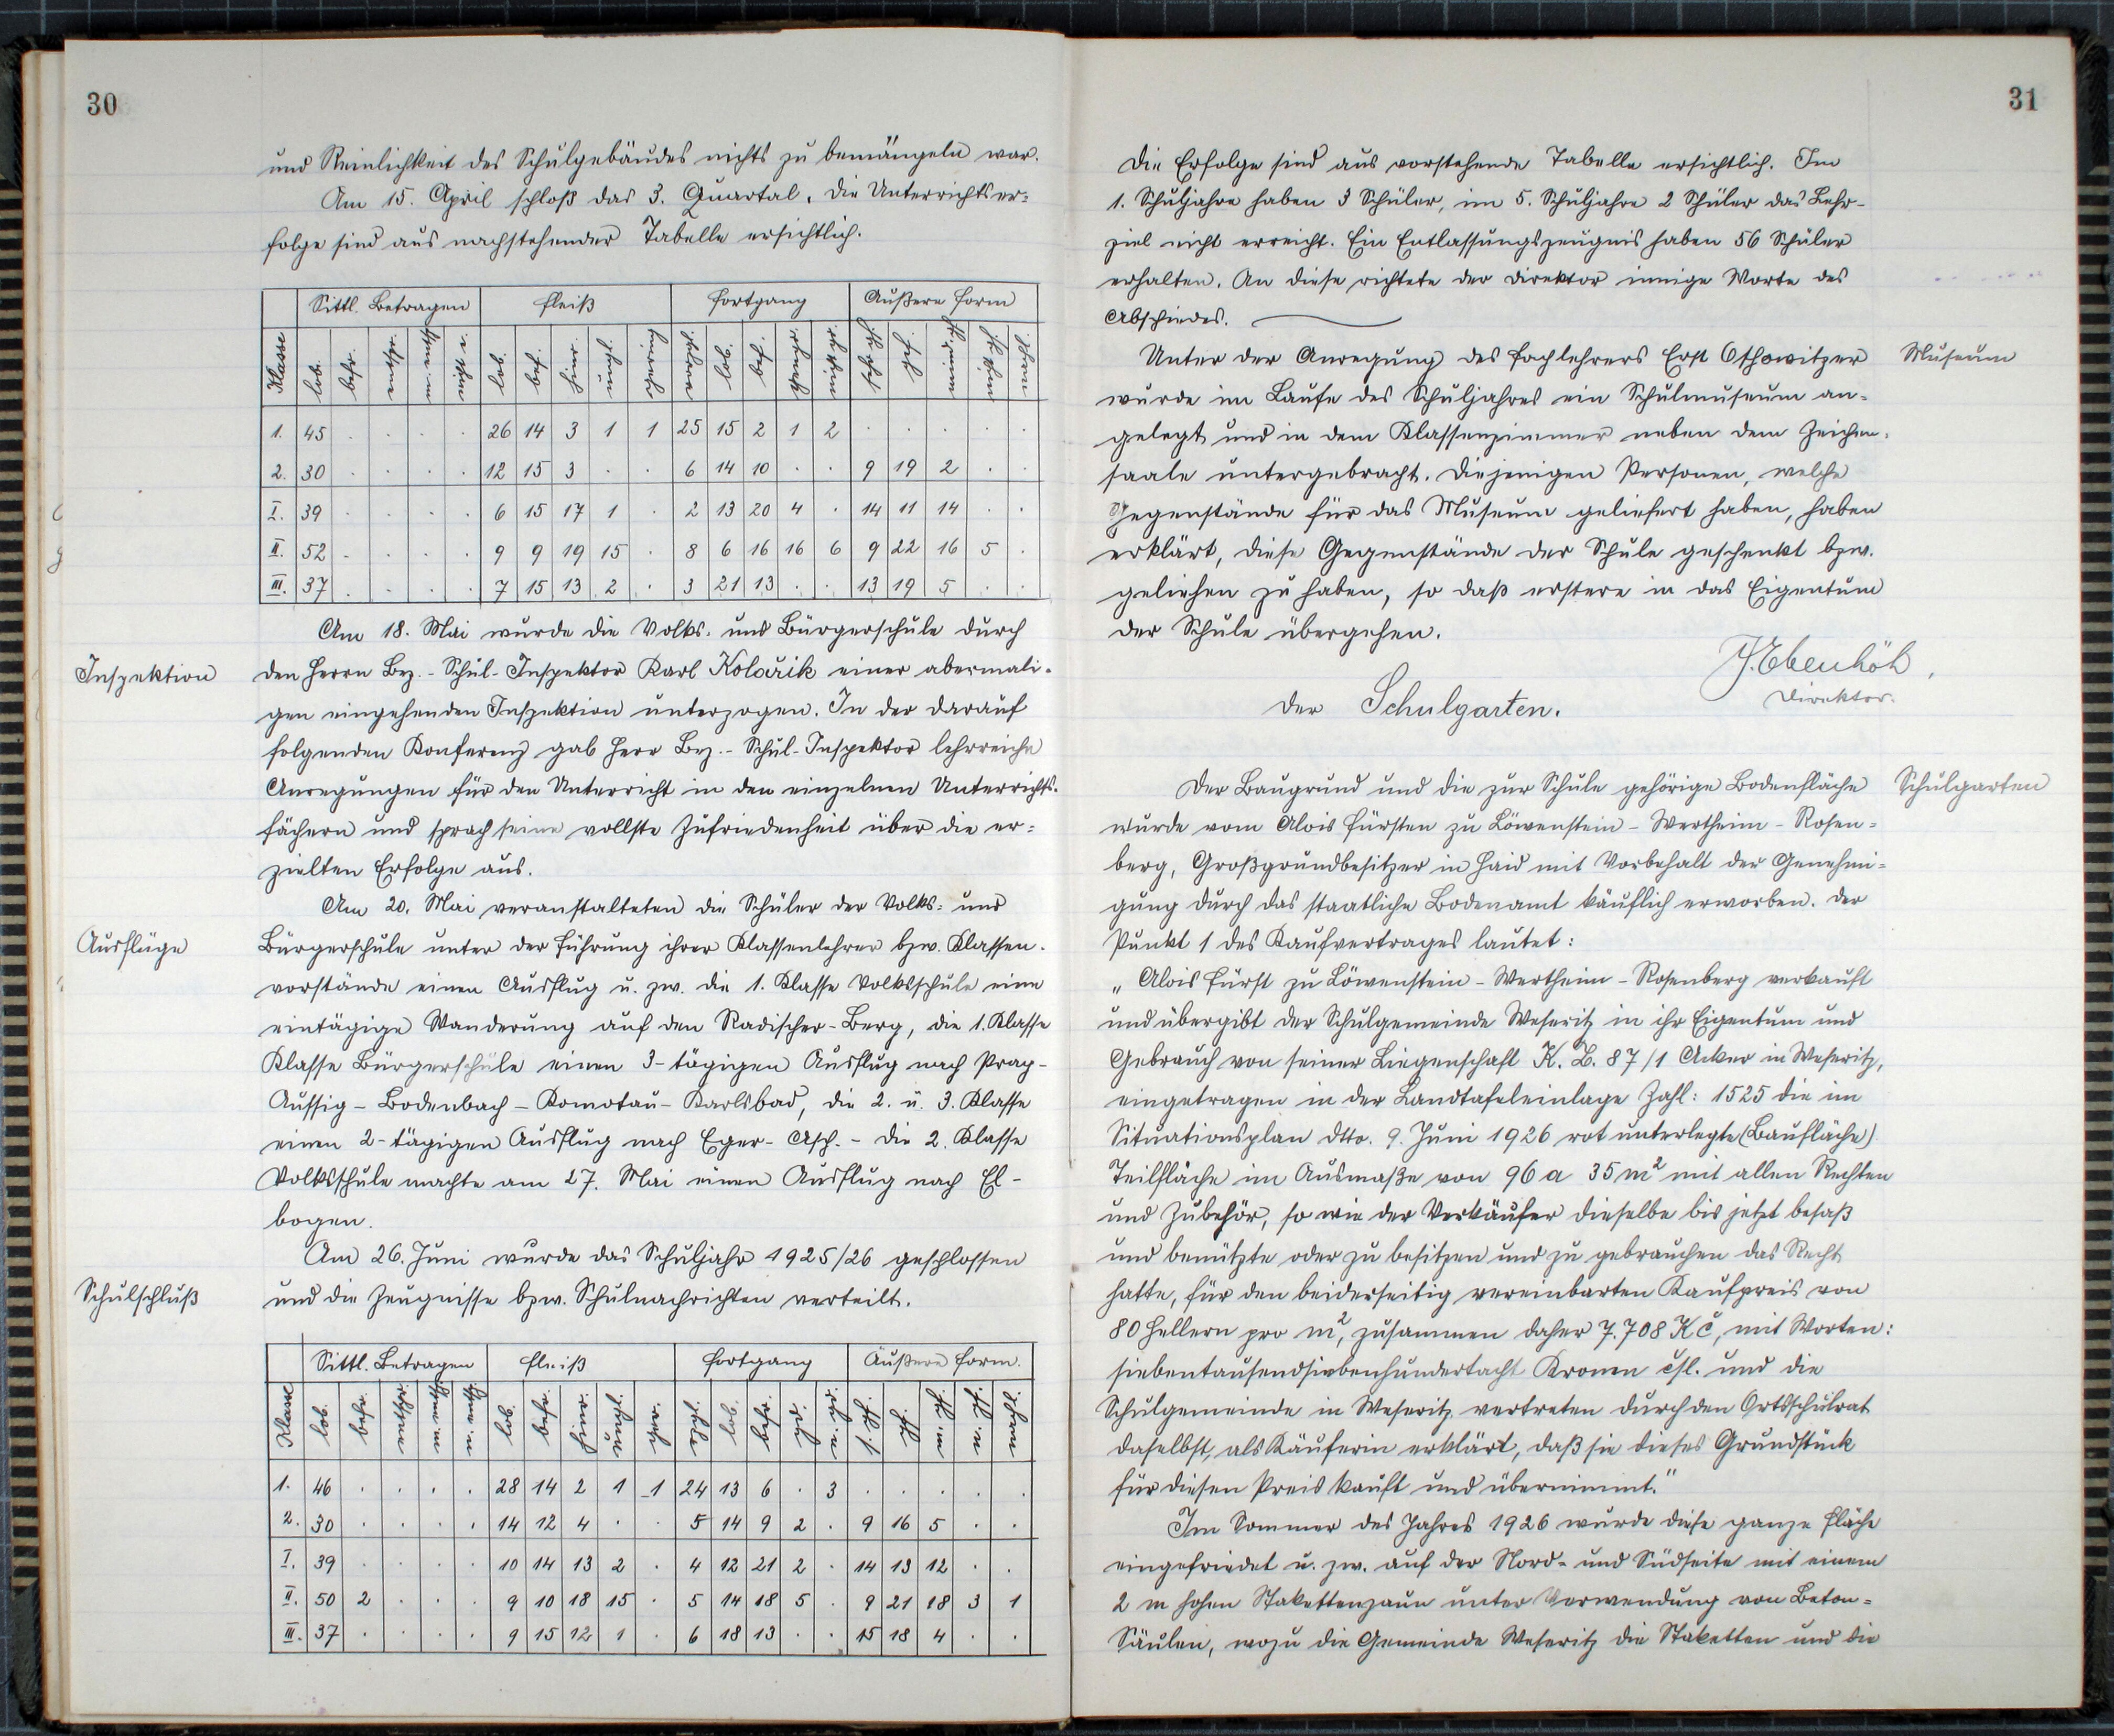 30
und Reinlichkeit des Schulgebäudes nichts zu bemängeln war.
Am 15. April schloß das 3. Quartal. Die Unterrichtser=
folge sind aus nachstehender Tabelle ersichtlich.
Sittl. Betragen Fleiß Fortgang Äußere Form
Klasse lob. befr. entspr. m. entspr. n. entspr. lob. bef. hinr. ungl. gering lob. bef.
1. 45 . . . . 26 14 3 1 1 25 15 2 1 2 . . . . .
2. 30 . . . . 12 15 3 . . 6 14 10 . . 9 19 2 . .
I. 39 . . . . 6 15 17 1 . 2 13 20 4 . 14 11 14 . .
II. 52 . . . . 9 9 19 15 . 8 6 16 16 6 9 22 16 5 .
III. 37 . . . . 7 15 13 2 . 3 21 13 . . 13 19 5 . .
Am 18. Mai wurde die Volks- und Bürgerschule durch
Inspektion den Herrn Bez.-Schul-Inspektor Karl Kolařik einer abermali-
gen eingehenden Inspektion unterzogen. In der darauf
folgenden Konferenz gab Herr Bez.-Schul-Inspektor lehrreiche
Anregungen für den Unterricht in den einzelnen Unterrichts-
fächern und sprach seine vollste Zufriedenheit über die er=
zielten Erfolge aus.
Am 20. Mai veranstalteten die Schüler der Volks- und
Ausflüge Bürgerschule unter der Führung ihrer Klassenlehrer bzw. Klassen-
vorstände einen Ausflug u. zw. die 1. Klasse Volksschule eine
eintägige Wanderung auf den Radischer-Berg, die 1. Klasse
Klasse Bürgerschule einen 3-tägigen Ausflug nach Prag-
Aussig-Bodenbach-Komotau-Karlsbad, die 2. u. 3. Klasse
einen 2-tägigen Ausflug nach Eger-Asch. - Die 2. Klasse
Volksschule machte am 27. Mai einen Ausflug nach El-
bogen.
Am 26. Juni wurde das Schuljahr 1925/26 geschlossen
Schulschluß und die Zeugnisse bzw. Schulnachrichten verteilt.
Sittl. Betragen Fleiß Fortgang Äußere Form.
Klasse lob. befr. entspr. m. entspr. n. entspr. lob. befr. hinr. ungl. ger. lob. befr.
1. 46 . . . . 28 14 2 1 1 24 13 6 . 3 . . . . .
2. 30 . . . . 14 12 4 . . 5 14 9 2 . 9 16 5 . .
I. 39 . . . . 10 14 13 2 . 4 12 21 2 . 14 13 12 . .
II. 50 2 . . . 9 10 18 15 . 5 14 18 5 . 9 21 18 3 1
III. 37 . . . . 9 15 12 1 . 6 18 13 . . 15 18 4 . .
31
Die Erfolge sind aus vorstehende Tabelle ersichtlich. Im
1. Schuljahre haben 3 Schüler, im 5. Schuljahre 2 Schüler das Lehr-
ziel nicht erreicht. Ein Entlassungszeugnis haben 56 Schüler
erhalten. An diese richtete der Direktor innige Worte des
Abschiedes.
Unter der Anregung des Fachlehrers Ernst Museum
wurde im Laufe des Schuljahres ein Schulmuseum an-
gelegt und in dem Klassenzimmer neben dem Zeichen-
saale untergebracht. Diejenigen Personen, welche
Gegenstände für das Museum geliefert haben, haben
erklärt, diese Gegenstände der Schule geschenkt bzw.
geliehen zu haben, so daß erstere in das Eigentum
der Schule übergehen.
J. Ebenhöh,
Direktor.
Der Schulgarten.
Der Baugrund und die zur Schule gehörige Bodenfläche Schulgarten
wurde vom Alois Fürsten zu Löwenstein-Wertheim-Rosen=
berg, Großgrundbesitzer in Haid mit Vorbehalt der Genehmi=
gung durch das staatliche Bodenamt käuflich erworben. Der
Punkt 1 des Kaufvertrages lautet:
„Alois Fürst zu Löwenstein-Wertheim-Rosenberg verkauft
und übergibt der Schulgemeinde Weseritz in ihr Eigentum und
Gebrauch von seiner Liegenschaft K. Z. 87/1 Acker in Weseritz,
eingetragen in der Landtafeleinlage Zahl: 1525 die im
Situationsplan dtto. 9. Juni 1926 rot unterlegte (Baufläche)
Teilfläche im Ausmaße von 96 a 35 m² mit allen Rechten
und Zubehör, so wie der Verkäufer dieselbe bis jetzt besaß
und benützte oder zu besitzen und zu gebrauchen das Recht
hatte, für den beiderseitig vereinbarten Kaufpreis von
80 Hellern pro m², zusammen daher 7.708 Kč, mit Worten:
siebentausendsiebenhundertacht Kronen čsl. und die
Schulgemeinde in Weseritz vertreten durch den Ortsschulrat
daselbst, als Käuferin erklärt, daß sie dieses Grundstück
für diesen Preis kauft und übernimmt."
Im Sommer des Jahres 1926 wurde diese ganze Fläche
eingefriedet u. zw. auf der Nord- und Südseite mit einem
2 m hohen Stakettenzaun unter Verwendung von Beton=
Säulen, wozu die Gemeinde Weseritz die Staketten und die